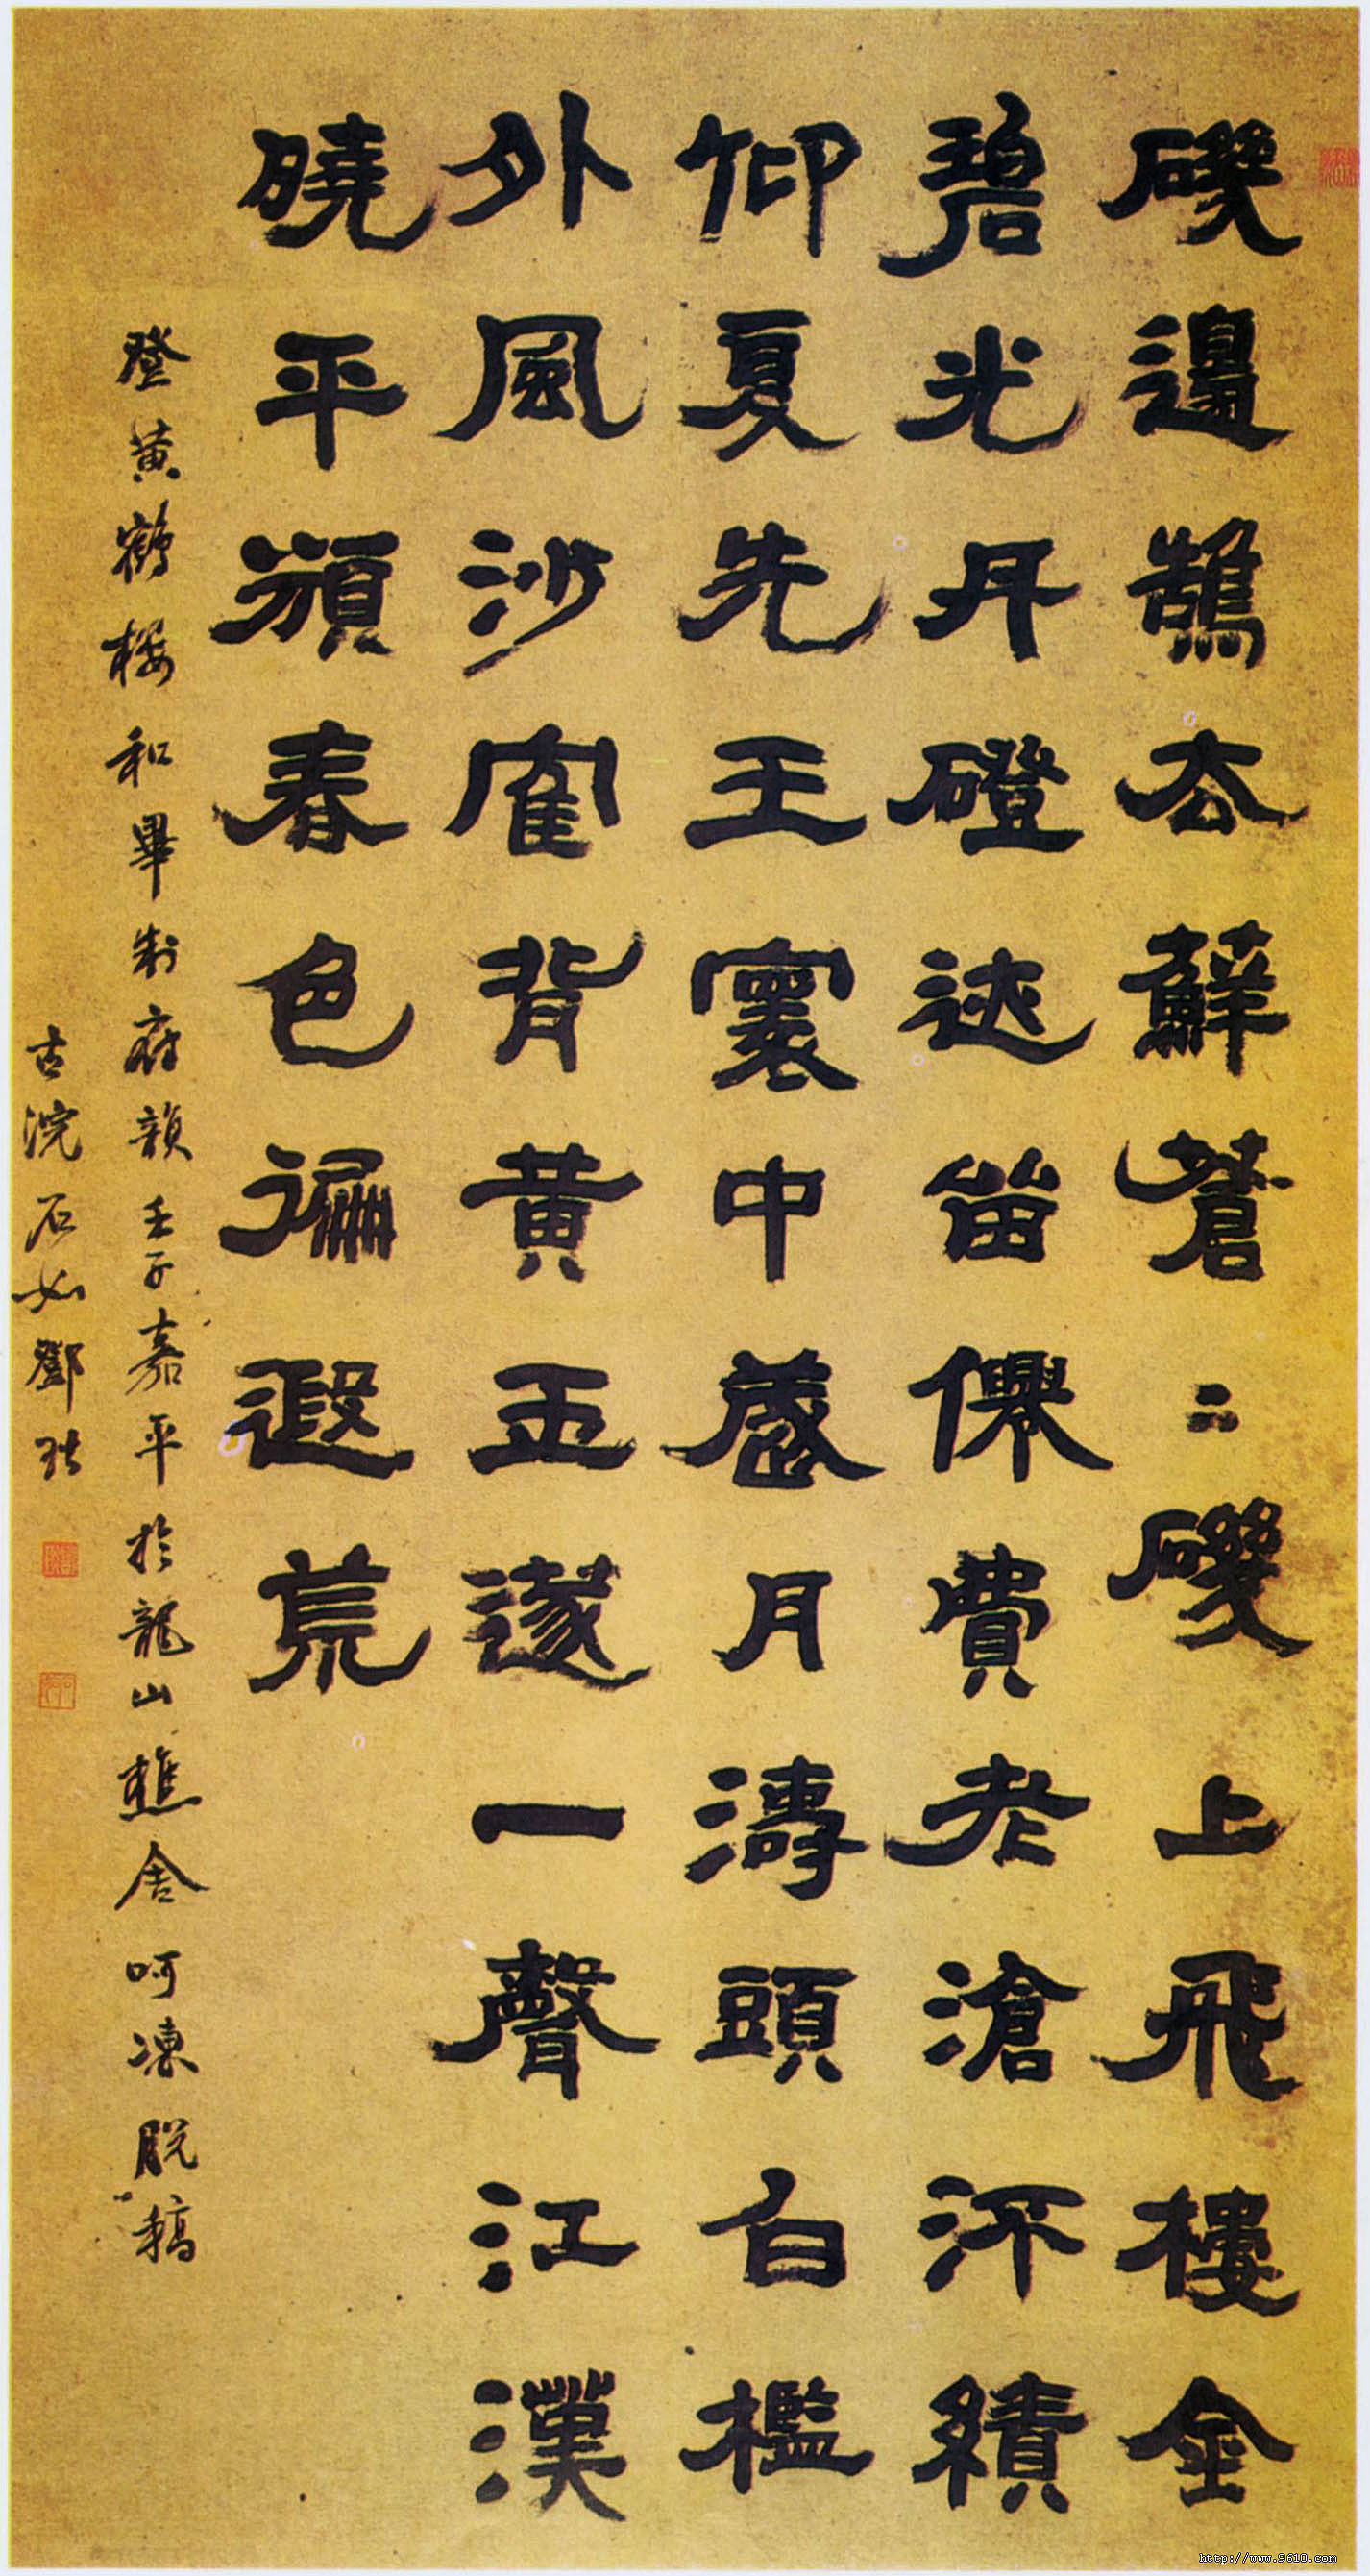 磯邊鵠去蘚蒼〻磯上飛樓金
碧光丹磴迹留僊費老滄績
仰夏先王寰中歲月濤頭白檻
外風沙隺背黃玉篴一聲江漢
曉平頒春色徧遐荒
登黃鶴樓和畢制府韻壬子嘉平於龍山樵舍呵凍脫稿
古浣石如鄧琰
http://www.9610.com